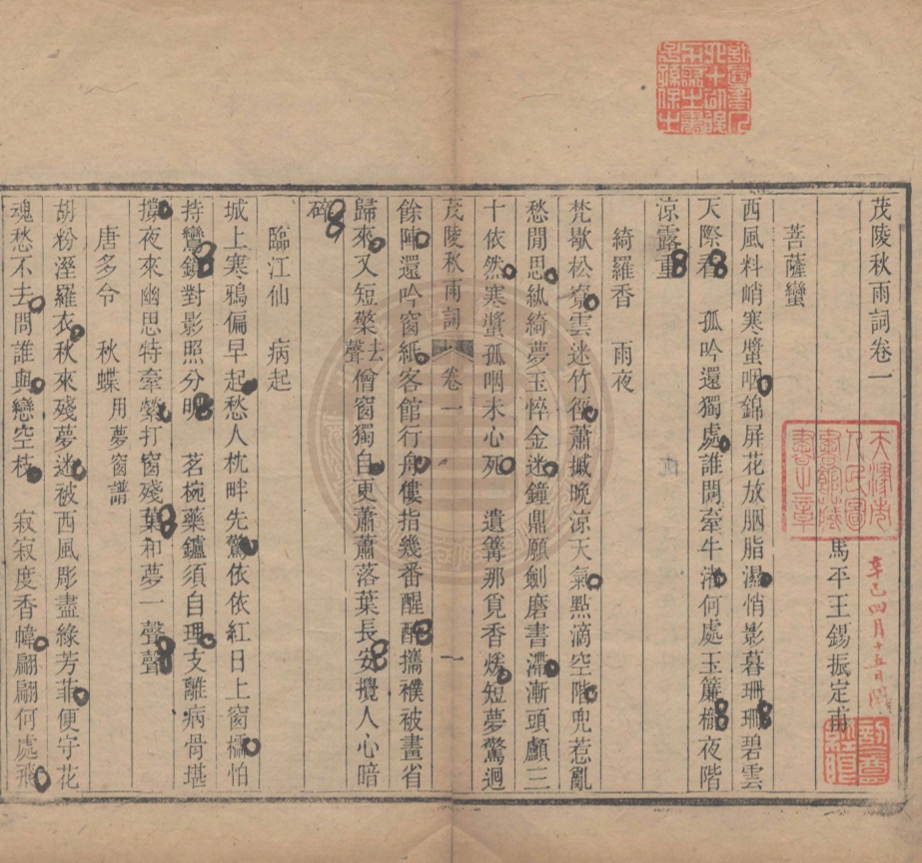 茂陵秋雨詞卷一
馬平王錫振定甫
菩薩蠻
西風料峭寒螿咽錦屏花放胭脂濕悄影暮珊珊碧雲
天際看　孤吟還獨處誰問牽牛渚何處玉簾櫳夜階
涼露重
綺羅香　雨夜
梵歇松寮雲迷竹徑蕭摵晚涼天氣點滴空階兜惹亂
愁閒思紈綺夢玉悴金迷鐘鼎願劍磨書滯漸頭顱三
十依然寒螿孤咽未心死　遺篝那覓香烬短夢驚迴
茂陵秋雨詞　卷一　一
餘陣還吟窗紙客館行舟僂指幾番醒醉攜襆被畫省
歸來又短檠去聲僧窗獨自更蕭蕭落葉長安攪人心暗
碎
臨江仙　病起
城上寒鴉偏早起愁人枕畔先驚依依紅日上窗櫺怕
持鸞鏡對影照分明　茗椀藥鑪須自理支離病骨堪
撐夜來幽思特牽縈打窗殘葉和夢一聲聲
唐多令　秋蝶　用夢窗譜
胡粉溼羅衣秋來殘夢迷被西風彫盡緣芳菲便守花
魂愁不去問誰與戀空枝　寂寂度香幃翩翩何處飛
天津市人民圖書館藏書之章
辛巳四月十五日